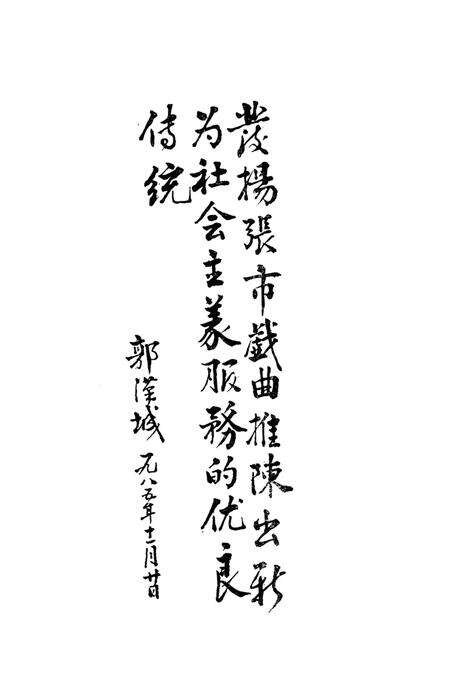 發揚張市戲曲推陳出新
为社会主义服務的优良
傳统
郭漢城
一九八五年十一月廿日